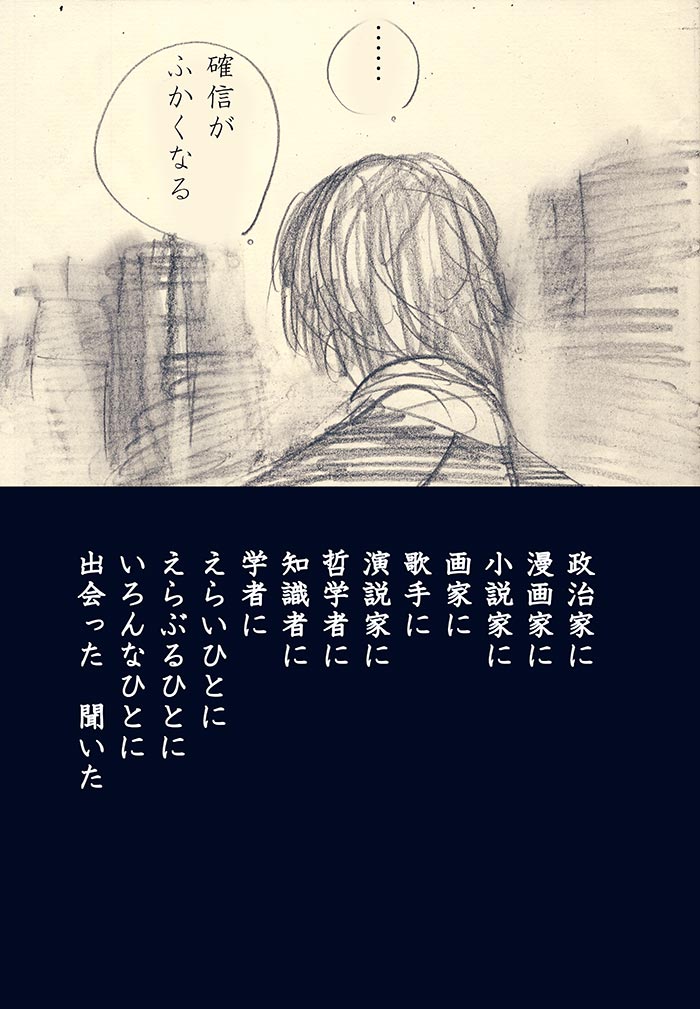 ……
確信が
ふかくなる
政治家に
漫画家に
小説家に
画家に
歌手に
演説家に
哲学者に
知識者に
学者に
えらいひとに
えらぶるひとに
いろんなひとに
出会った　聞いた